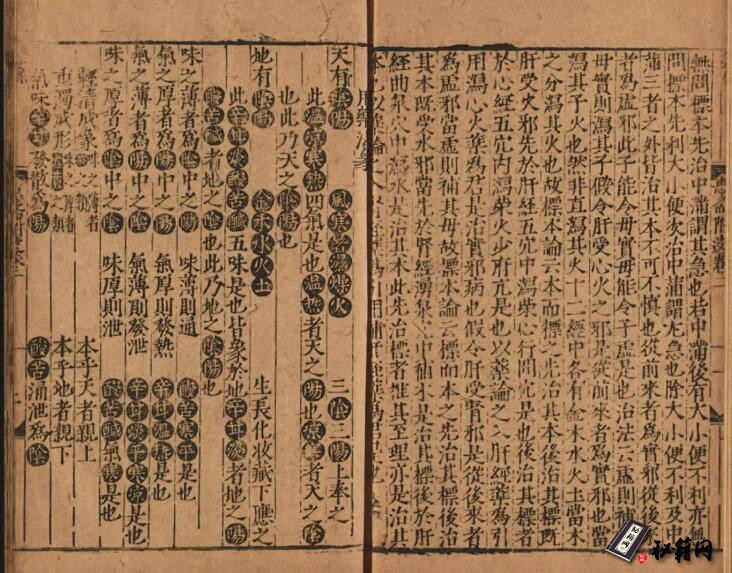 無問標本先利大小便次治中滿謂其急也若中滿後有大小便不利亦無
問標本先利大小便次治中滿謂尤急也除大小便不利及中
滿三者之外皆治其本不可不慎也從前來者為實邪從後來
者為虛邪此子能令母實母能令子虛是也治法云虛則補其
母實則瀉其子假令肝受心火之邪是從前來者為實邪也當
瀉其子火也然非直瀉其火十二經中各有金木水火土當木
之分瀉其火也故標本論云本而標之先治其本後治其標既
肝受火邪先於肝經五穴中瀉滎心行間穴是也後治其標者
於心經五穴內瀉滎火少府穴是也以藥論之入肝經藥為引
用瀉心火藥為君是治實邪病也假令肝受腎邪是從後來者
為虛邪當虛則補其母故標本論云標而本之先治其標後治
其本既受水邪當先於腎經湧泉穴中補木是先治其標後於肝
經曲泉穴中瀉水是治其本此先治標者推其至理亦是治其
本也以藥論之
用藥法象
天有陰陽 風寒暑濕燥火 三陰三陽上奉之
此溫涼寒熱四氣是也溫熱者天之陽也涼寒者天之陰
也此乃天之陰陽也
地有陰陽 金木水火土 生長化收藏下應之
此辛甘淡酸苦鹹五味是也皆象於地辛甘淡者地之陽
酸苦鹹者地之陰也此乃地之陰陽也
味之薄者為陰中之陽 味薄則通 酸苦鹹平是也
味之厚者為陰中之陰 味厚則泄 酸苦鹹寒是也
氣之厚者為陽中之陽 氣厚則發熱 辛甘溫熱是也
氣之薄者為陽中之陰 氣薄則發泄 辛甘淡平寒涼是也
輕清成象 本乎天者親上
重濁成形 本乎地者親下
氣味辛甘發散為陽 酸苦涌泄為陰
秘籍网